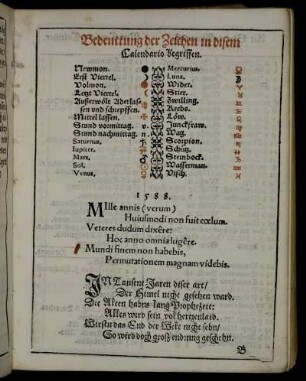 Bedeuttung der Zeichen in disem
Calendario begriffen.
Newmon.
Erst Viertel.
Volmon.
Letzt Viertel.
Außerwölt Aderlas-
sen vnd schrepffen.
Mittel lassen.
Stund vormittag. v.
Stund nachmittag. n.
Saturnus.
Iupiter.
Mars.
Sol.
Venus.
Mercurius.
Luna.
Wider.
Stier.
Zwilling.
Krebs.
Löw.
Junckfraw.
Wag.
Scorpion.
Schütz.
Steinbock.
Wasserman.
Visch.
1588.
Mille annis (verum)
Huiusmodi non fuit cœlum.
Veteres dudum dixêre:
Hoc anno omnia lugêre.
Mundi finem non habebis,
Permutationem magnam videbis.
In Tausent Jaren diser art/
Der Himel nicht gesehen ward.
Die Alten habens lang Prophezeit:
Alles werd sein vol hertzenlaid.
Wirstu das End der Welt nicht sehn/
So wird doch groß endrung geschehn.
B